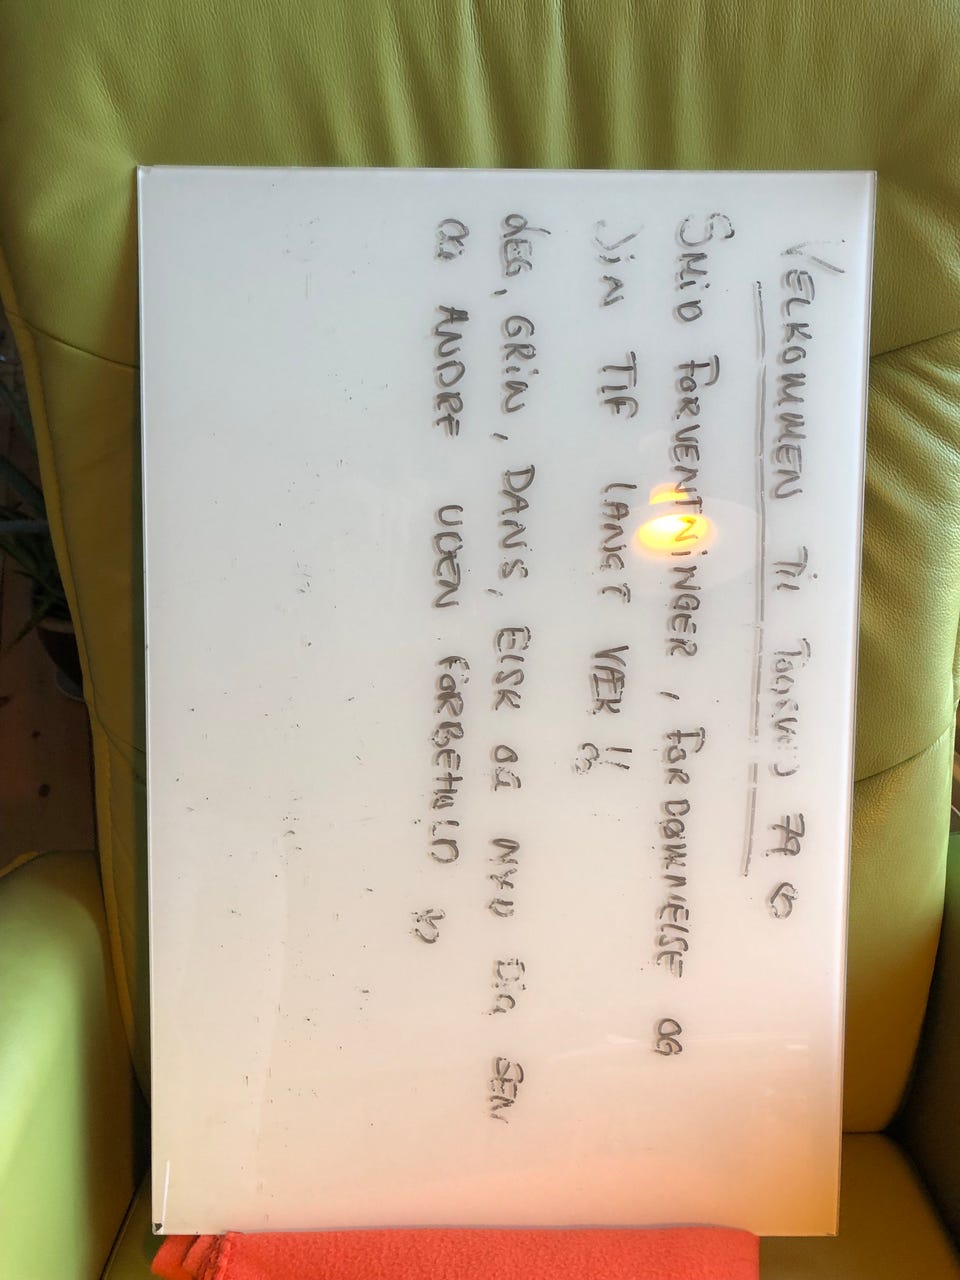 VELKOMMEN TIL
SMID FORVENTNINGER, FORDØMMELSE OG
DIN TLF LANGT VÆK!
LEG, GRIN, DANS, ELSK OG NYD DIG SELV
OG ANDRE UDEN FORBEHOLD